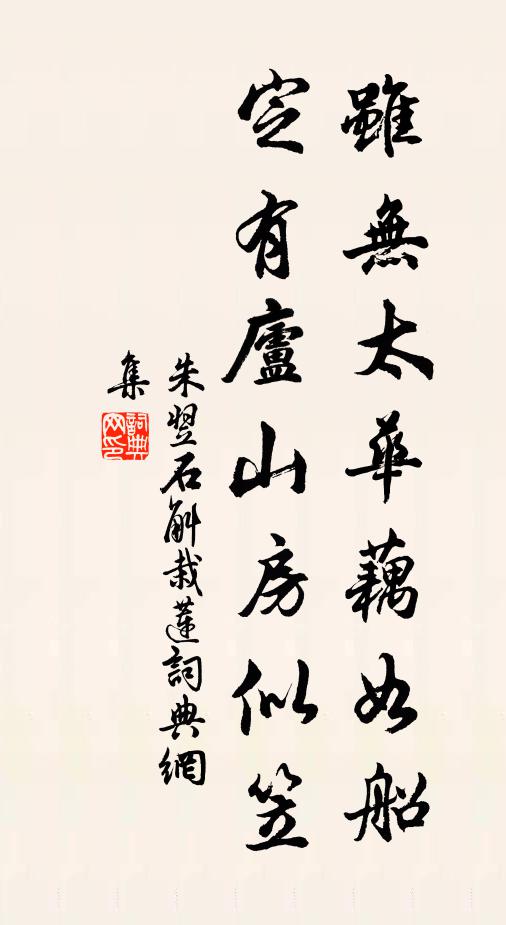 雖無太華藕如船
定有廬山房似笠
朱翌石斛栽蓮詞典網
集
詞典網印